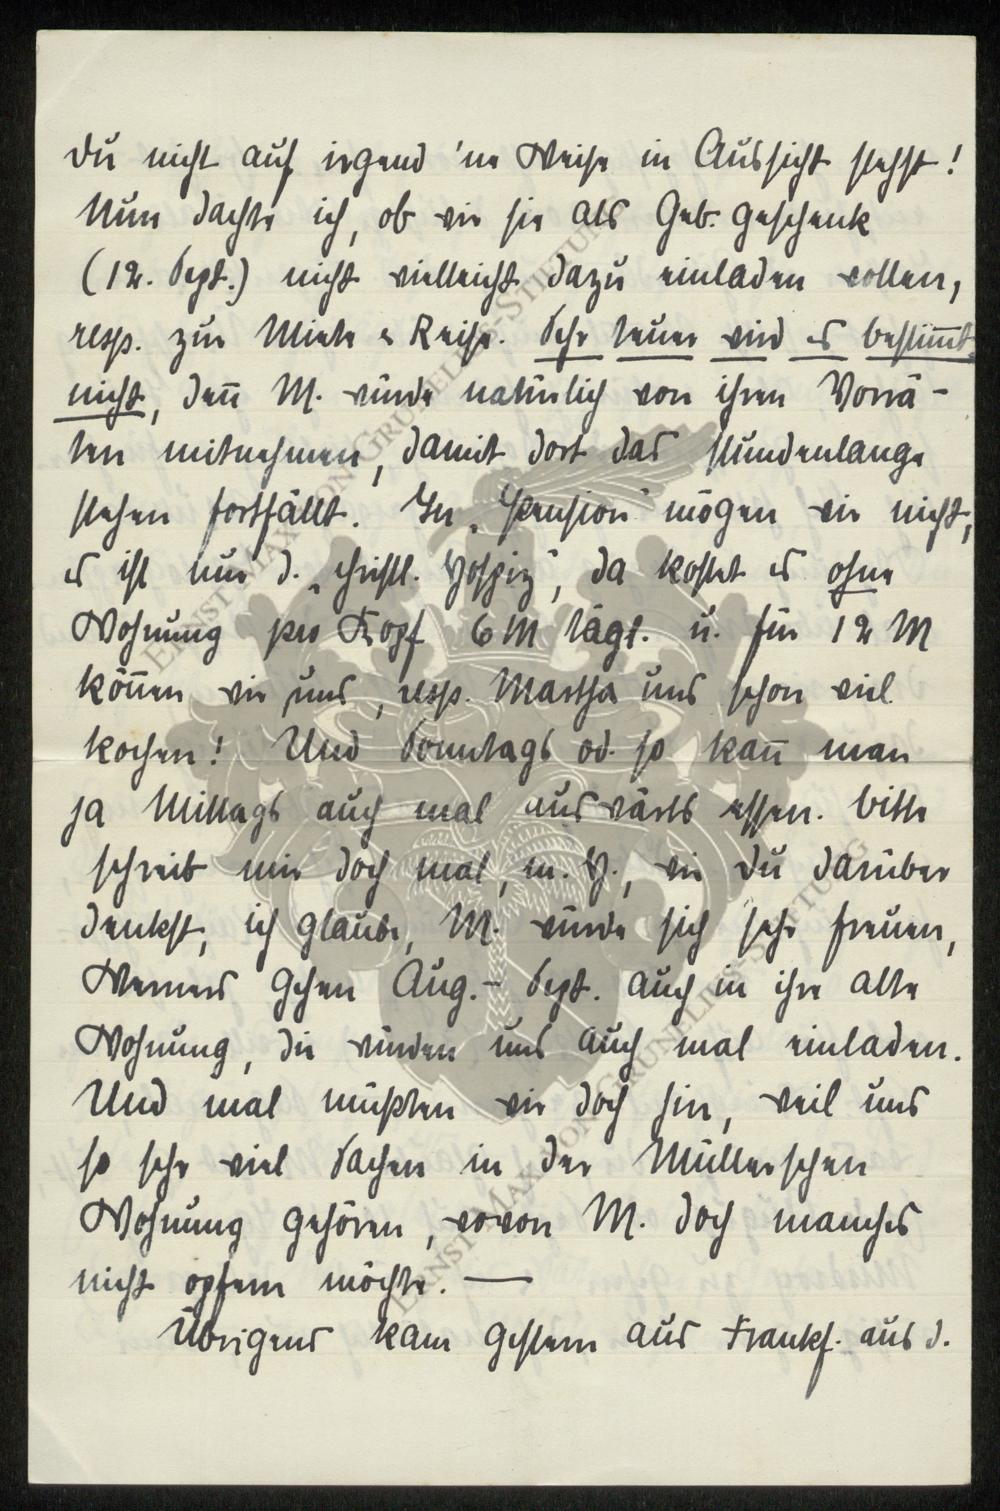 Du nicht auf irgend 'ne Weise in Aussicht stehst!
Nun dachte ich, ob wir sie als Geb. geschenk
(12. Sept.) nicht vielleicht dazu einladen wollen,
resp. zur Miete & Reise. Sehr teuer wird es bestim̅t
nicht, den̅ M. würde natürlich von ihren Vorrä-
ten mitnehmen, damit dort das stundenlange
stehen fortfällt. In „Pension" mögen wir nicht,
es ist nur d. „christl. Hospiz", da kostet es ohne
Wohnung pro Kopf 6 M tägl. u. für 12 M
kön̅en wir uns, resp. Martha uns schon viel
kochen! Und Sonntags od. so kan̅ man
ja Mittags auch mal auswärts essen. Bitte
schreib mir doch mal, m. H., wie Du darüber
denkst, ich glaube, M. würde sich sehr freuen,
Werners gehen Aug.- Sept. auch in ihre alte
Wohnung, die würden uns auch mal einladen.
Und mal müßten wir doch hin, weil uns
so sehr viel Sachen in der Müllerschen
Wohnung gehören, wovon M. doch manches
nicht opfern möchte. —
Übrigens kam gestern aus Frankf. aus d.
ERNST MAX VON GRUNELIUS-STIFTUNG
ERNST MAX VON GRUNELIUS-STIFTUNG